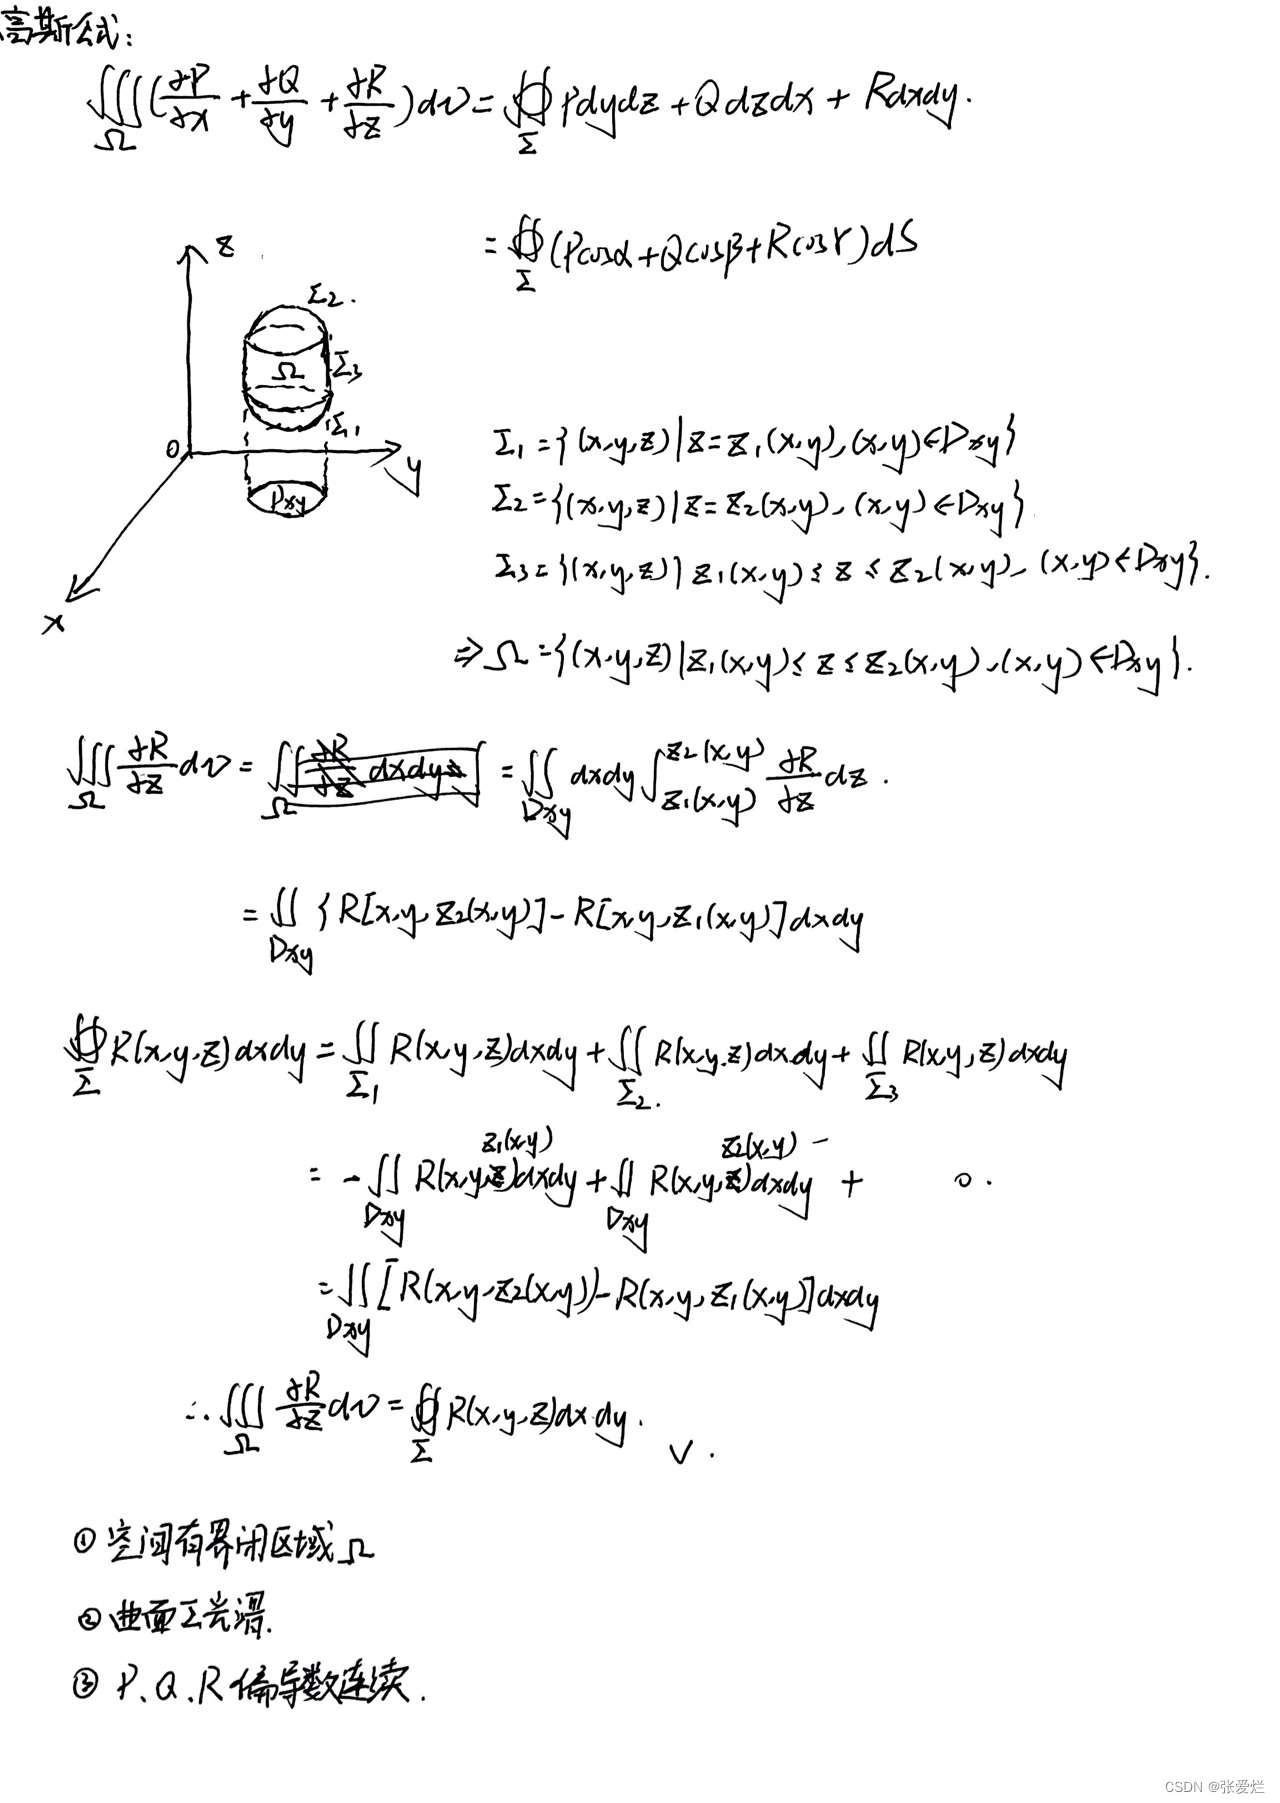 高斯公式:
∭_Ω (∂P/∂x + ∂Q/∂y + ∂R/∂z) dv = ∯_Σ Pdydz + Qdzdx + Rdxdy.
= ∯_Σ (Pcosα + Qcosβ + Rcosγ) dS
z
Σ2.
Ω
Σ3
Σ1
O
y
Dxy
x
Σ1 = {(x,y,z) | z = z1(x,y), (x,y) ∈ Dxy}
Σ2 = {(x,y,z) | z = z2(x,y), (x,y) ∈ Dxy}
Σ3 = {(x,y,z) | z1(x,y) ≤ z ≤ z2(x,y), (x,y) ∈ Dxy}.
⇒ Ω = {(x,y,z) | z1(x,y) ≤ z ≤ z2(x,y), (x,y) ∈ Dxy}.
∭_Ω ∂R/∂z dv = ∬_Ω ∂R/∂z dxdyz = ∬_Dxy dxdy ∫_{z1(x,y)}^{z2(x,y)} ∂R/∂z dz.
= ∬_Dxy {R[x,y,z2(x,y)] - R[x,y,z1(x,y)] dxdy
∯_Σ R(x,y,z)dxdy = ∬_Σ1 R(x,y,z)dxdy + ∬_Σ2. R(x,y,z)dxdy + ∬_Σ3 R(x,y,z)dxdy
= -∬_Dxy R(x,y,z1(x,y))dxdy + ∬_Dxy R(x,y,z2(x,y))dxdy + 0.
= ∬_Dxy [R(x,y,z2(x,y)) - R(x,y,z1(x,y)]dxdy
∴ ∭_Ω ∂R/∂z dv = ∯_Σ R(x,y,z)dxdy. √.
① 空间有界闭区域Ω
② 曲面Σ光滑.
③ P、Q、R偏导数连续.
CSDN @张爱烂